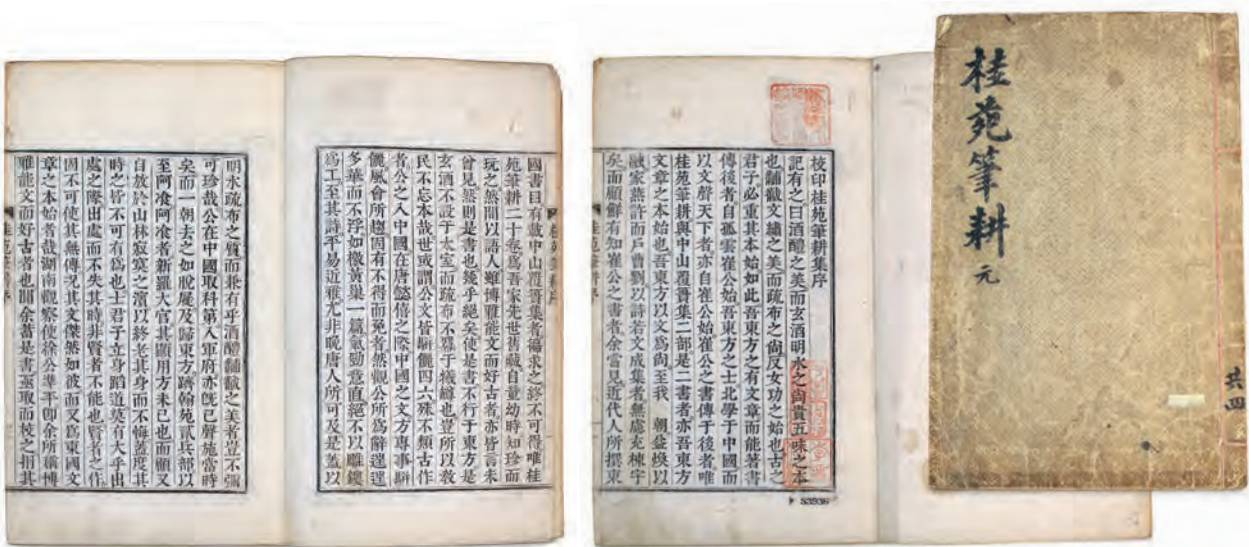 桂苑筆耕 元
共四
校印桂苑筆耕集序
記有之曰酒醴之美而玄酒明水之尙貴五味之本
也黼黻文繡之美而疏布之尙反女功之始也古之
君子必重其本始如此吾東方之有文章而能著書
傳後者自孤雲崔公始吾東方之士北學于中國而
以文聲天下者亦自崔公始崔公之書傳于後者唯
桂苑筆耕與中山覆簣集二部是二書者亦吾東方
文章之本始也吾東方以文爲尙至我 朝益煥以
融家燕許而戶曹劉以詩若文成集者無慮充棟宇
矣而顧鮮有知崔公之書者余嘗見近代人所撰東
53936
國書目有載中山覆簣集者徧求之終不可得唯桂
苑筆耕二十卷爲吾家先世舊藏自童幼時知珍而
玩之然間以語人雖博雅能文而好古者亦皆言未
曾見然則是書也幾乎絕矣使是書不行于東方是
玄酒不設于太室而疏布不冪于犧罇也豈所以敎
民不忘本哉世或謂公文皆騈儷四六殊不類古作
者公之入中國在唐懿僖之際中國之文方專事騈
儷風會所趨固有不得而免者然觀公所爲辭往往
多華而不浮如檄黃巢一篇氣勁意直絕不以雕鏤
爲工至其詩平易近雅尤非晚唐人所可及是蓋以
明水疏布之質而兼有乎酒醴黼黻之美者豈不彌
可珍哉公在中國取科第入軍府亦旣已聲施當時
矣而一朝去之如脫屣及歸東方躋翰苑貳兵部以
至阿飡阿飡者新羅大官其顯用方未已也而顧又
自放於山林寂寞之濱以終老其身而不悔蓋度其
時之皆不可有爲也士君子立身蹈道莫有大乎出
處之際出處而不失其時非賢者不能也賢者之作
固不可使其無傳況其文傑然如彼而又爲東國文
章之本始者哉湖南觀察使徐公準平卽余所稱博
雅能文而好古者也聞余蓄是書亟取而校之捐其